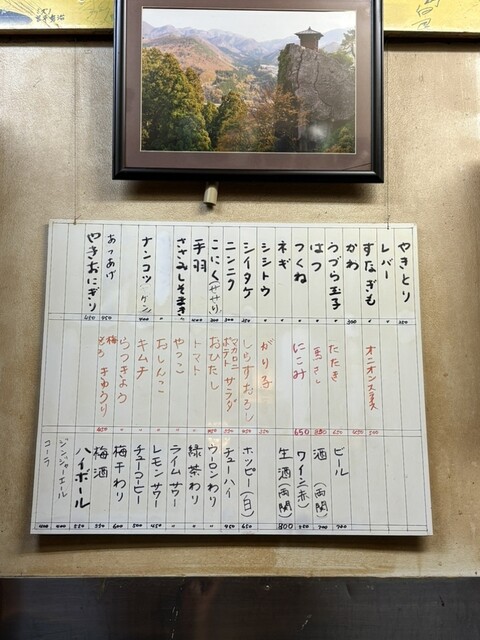 やきとり
レバー
すなぎも
かわ
うづら玉子
はつ
つくね
ネギ
シシトウ
シイタケ
ニンニク
こにく(せせり)
手羽
ささみしそまき
ナンコツ(ゲンコツ)
あつあげ
やきおにぎり
オニオンスライス
たたき
馬さし
にこみ
がり子
しらすおろし
マカロニ
ポテト サラダ
おひたし
トマト
やっこ
おしんこ
キムチ
らっきょう
梅
もろ きゅうり
ビール
酒(両関)
ワイン(赤)
生酒(両関)
ホッピー(白)
チューハイ
ウーロンわり
緑茶わり
ライムサワー
レモンサワー
チューコーヒー
梅干わり
梅酒
ハイボール
ジンジャーエール
コーラ